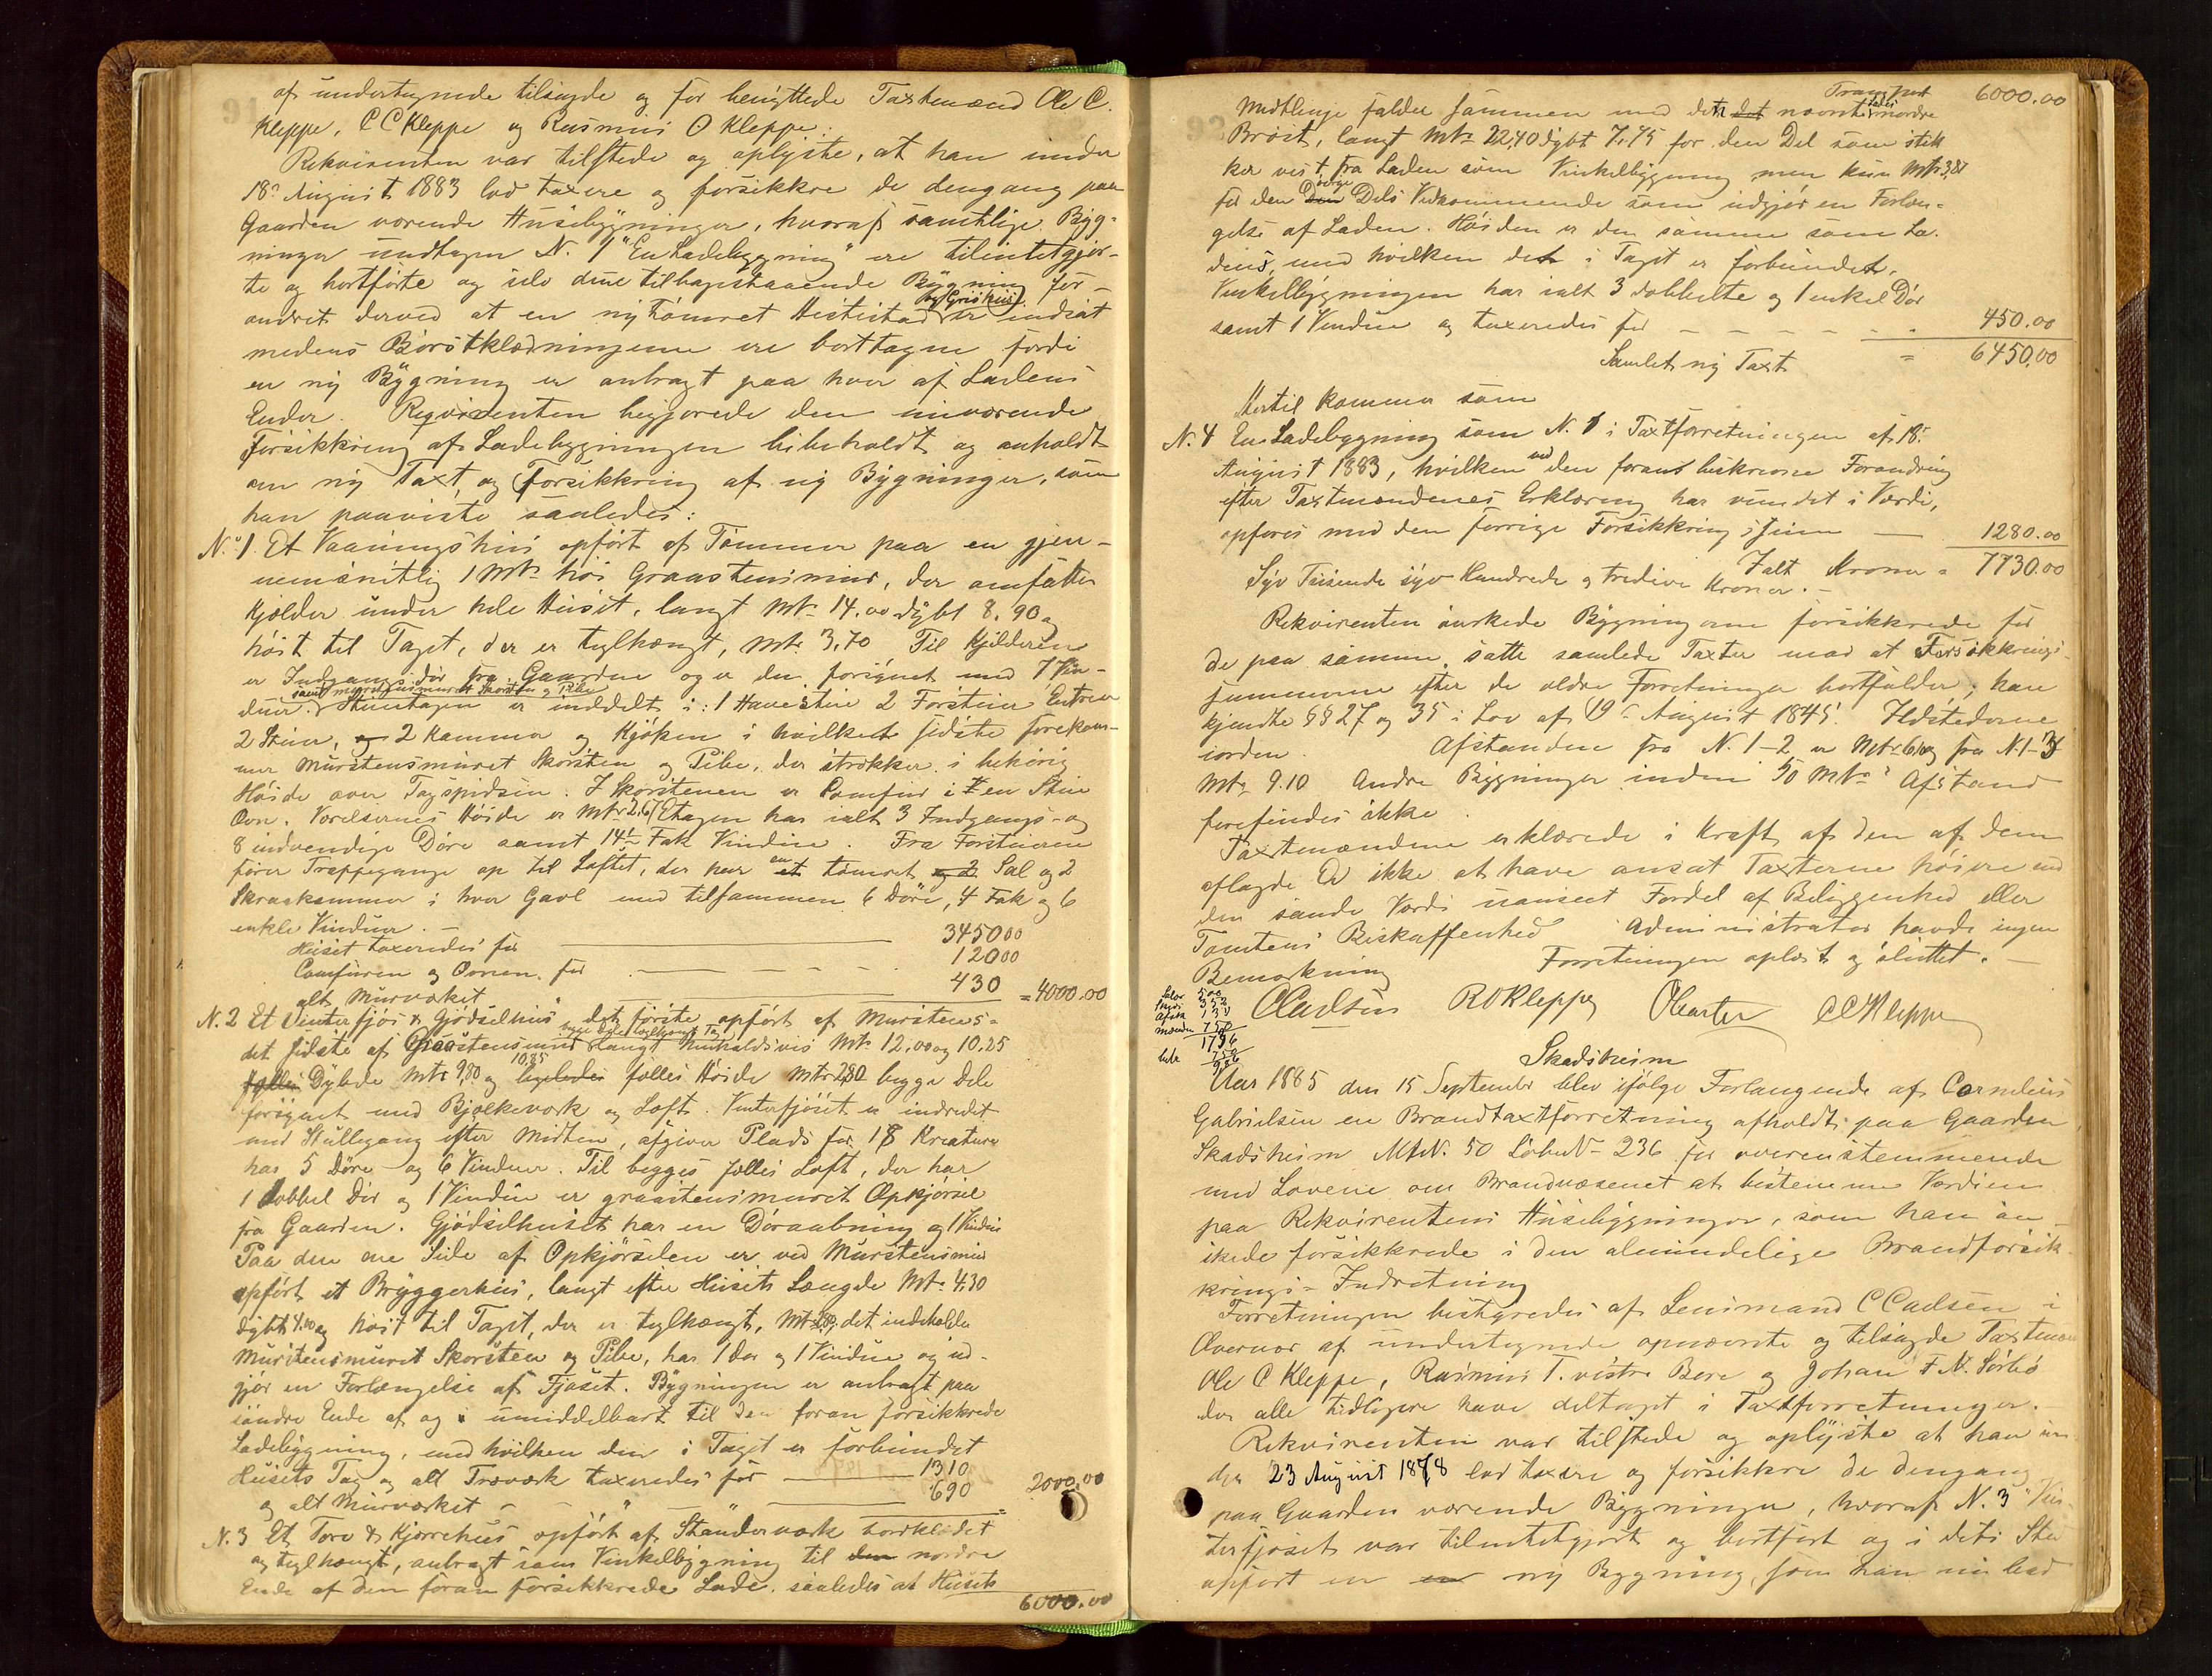 af undertegnede tilsagde og før benyttede Taxtmænd Ole C.
Kleppe, C C Kleppe og Rasmus O Kleppe:
Rekvirenten var tilstede og oplyste, at han under
18? August 1883 lod taxere og forsikkre de dengang paa
Gaarden værende Husebygninger, hvoraf samtlige Byg-
ninger undtagen N. 1 "En Ladebygning" ere tilintetgjor-
te og bortførte og selv den tilbagestaaende Bygning for-
andret derved at en nytømret Hestestad og Grishus er indsat
medens Børstklædningerne ere borttagne fordi
en ny Bygning er anbragt paa hver af Ladens
Ender. Reqvirenten begjærede den nuværende
Forsikkring af Ladebygningen bibeholdt og anholdt
om ny Taxt og Forsikkring af ny Bygninger, som
han paaviste saaledes:
N. 1 Et Vaaningshus opført af Tømmer paa en gjen-
nemsnitlig 1 Mtr høi Graastensmur, der omfatter
Kjelder under hele Huset, langt Mtr 14.00 dybt 8.90 og
høit til Taget, der er teglhængt, Mtr 3,70 Til Kjelderen
er Indgangsdør fra Gaarden og er den forsynet med 7 Vin-
duer. samt murstensmuret Skorsten og Pibe Stueetagen er inddelt i: 1 Havestue 2 Forstuer Entreer
2 Stuer, og 2 Kammer og Kjøken i hvilket sidste forekom-
mer Murstensmuret Skorsten og Pibe, der strækker i behørig
Høide over Tagspidsen. I Skorstenen er Comfur i en Stue
Ovn. Værelsernes Høide er Mtr 2,67 Etagen har ialt 3 Indgangs- og
8 indvendige Døre samt 14 Fak Vinduer. Fra Forstuerne
fører Trappegange op til Loftet, der har en tømret Sal og 2
Skraakammer i hver Gavl med tilsammen 6 Døre, 4 Fak og 6
enkle Vinduer. –
Huset taxeredes for 3450 00
Comfuren og Ovnen for 120 00
alt Murværket 430 = 4000.00
N. 2 Et Vinterfjøs & Gjødselhus det første opført af Mursten &
det sidste af Graastensmur langt henholdsvis Mtr 12.00 og 10.25
Dybde Mtr 9,80 og 10,85 fælles Høide Mtr 2,80 begge Dele
forsynet med Bjelkeværk og Loft. Vinterfjøset er indredet
med Stullegang efter Midten, afgiver Plads for 18 Kreature
har 5 Døre og 6 Vinduer. Til begges fælles Loft, der har
1 dobbel Dør og 1 Vindue er graastensmuret Opkjørsel
fra Gaarden. Gjødselhuset har en Døraabning og 1 Vindue
Paa den ene Side af Opkjørselen er ved Murstensmur
opført et Bryggerhus, langt efter Husets Længde Mtr 4.30
dybt 4.00 og høit til Taget, der er teglhængt, Mtr 2.80, det indeholder
Murstensmuret Skorsten og Pibe, har 1 Dør og 1 Vindue og ud-
gjør en Forlængelse af Fjøset. Bygningen er anbragt paa
søndre Ende af og umiddelbart til den foran forsikkrede
Ladebygning, med hvilken den i Taget er forbundet
Husets Tag og alt Træværk taxeredes for 1310
og alt Murværket 690 2000.00
N. 3 Et Torv & Kjærrehus opført af Standerværk bordklædet
og teglhængt, anbragt som Vinkelbygning til den nordre
Ende af den foran forsikkrede Lade, saaledes at Husets
6000.00
Transport 6000.00
Midtlinje falder sammen med den nævnte Lades nordre
Brøst, langt Mtr 22,40 dybt 7,75 for den Del som stik-
ker vest fra Laden som Vinkelbygning men kun Mtr 3,81
for den øvrige Dels Vedkommende som udgjør en Forlæn-
gelse af Laden. Høiden er den samme som La-
dens, med hvilken det i Taget er forbundet.
Vinkelbygningen har ialt 3 dobbelte og 1 enkel Dør
samt 1 Vindue og taxeredes for 450.00
Samlet ny Taxt = 6450.00
Hertil kommer som
N. 4 En Ladebygning som N. 1 i Taxtforretningen af 18.
August 1883, hvilken ved den foran beskrevne Forandring
efter Taxtmændenes Erklæring har vundet i Værdi,
opføres med den forrige Forsikkringssum 1280.00
Ialt Kroner = 7730.00
Syv Tusende syv Hundrede og tredive Kroner. –
Rekvirenten ønskede Bygningerne forsikkrede for
de paa samme satte samlede Taxter mod at Forsikkrings-
summerne efter de ældre Forretninger bortfalder, han
kjendte §§ 27 og 35 i Lov af 19de August 1845. Ildstederne
iorden. Afstanden fra N. 1-2 er Mtr 6,10 og fra N. 1-3
Mtr 9.10 Andre Bygninger inden 50 Mtrs Afstand
forefindes ikke.
Taxtmændene erklærede i Kraft af den af dem
aflagde Ed ikke at have ansat Taxterne høiere end
den sande Værdi uanseet Fordel af Beliggenhed eller
Tomtens Beskaffenhed Administrator havde ingen
Bemærkning Forretningen oplæst og sluttet. –
CCarlsen ROKleppe CCKleppe
Skadsheim
Aar 1885 den 15 September blev ifølge Forlangende af Cornelius
Gabrielsen en Brandtaxtforretning afholdt paa Gaarden
Skadsheim MtN. 50 LøbeN– 236 for overensstemmende
med Lovene om Brandvæsenet at bestemme Værdien
paa Rekvirentens Husebygninger, som han øn-
skede forsikkrede i den almindelige Brandforsik-
krings-Indretning
Forretningen bestyredes af Lensmand C Carlsen i
Overvær af undertegnede opnævnte og tilsagde Taxtmænd
Ole C Kleppe, Rasmus T. vestre Bore og Johan F. N. Sørbø
der alle tidligere have deltaget i Taxtforretninger. –
Rekvirenten var tilstede og oplyste at han un-
der 23 August 1878 lod taxere og forsikkre de dengang
paa Gaarden værende Bygninger, hvoraf N. 3 "Vin-
terfjøset var tilintetgjort og bortført og i dets Sted
opført en ny Bygning, som han nu lod